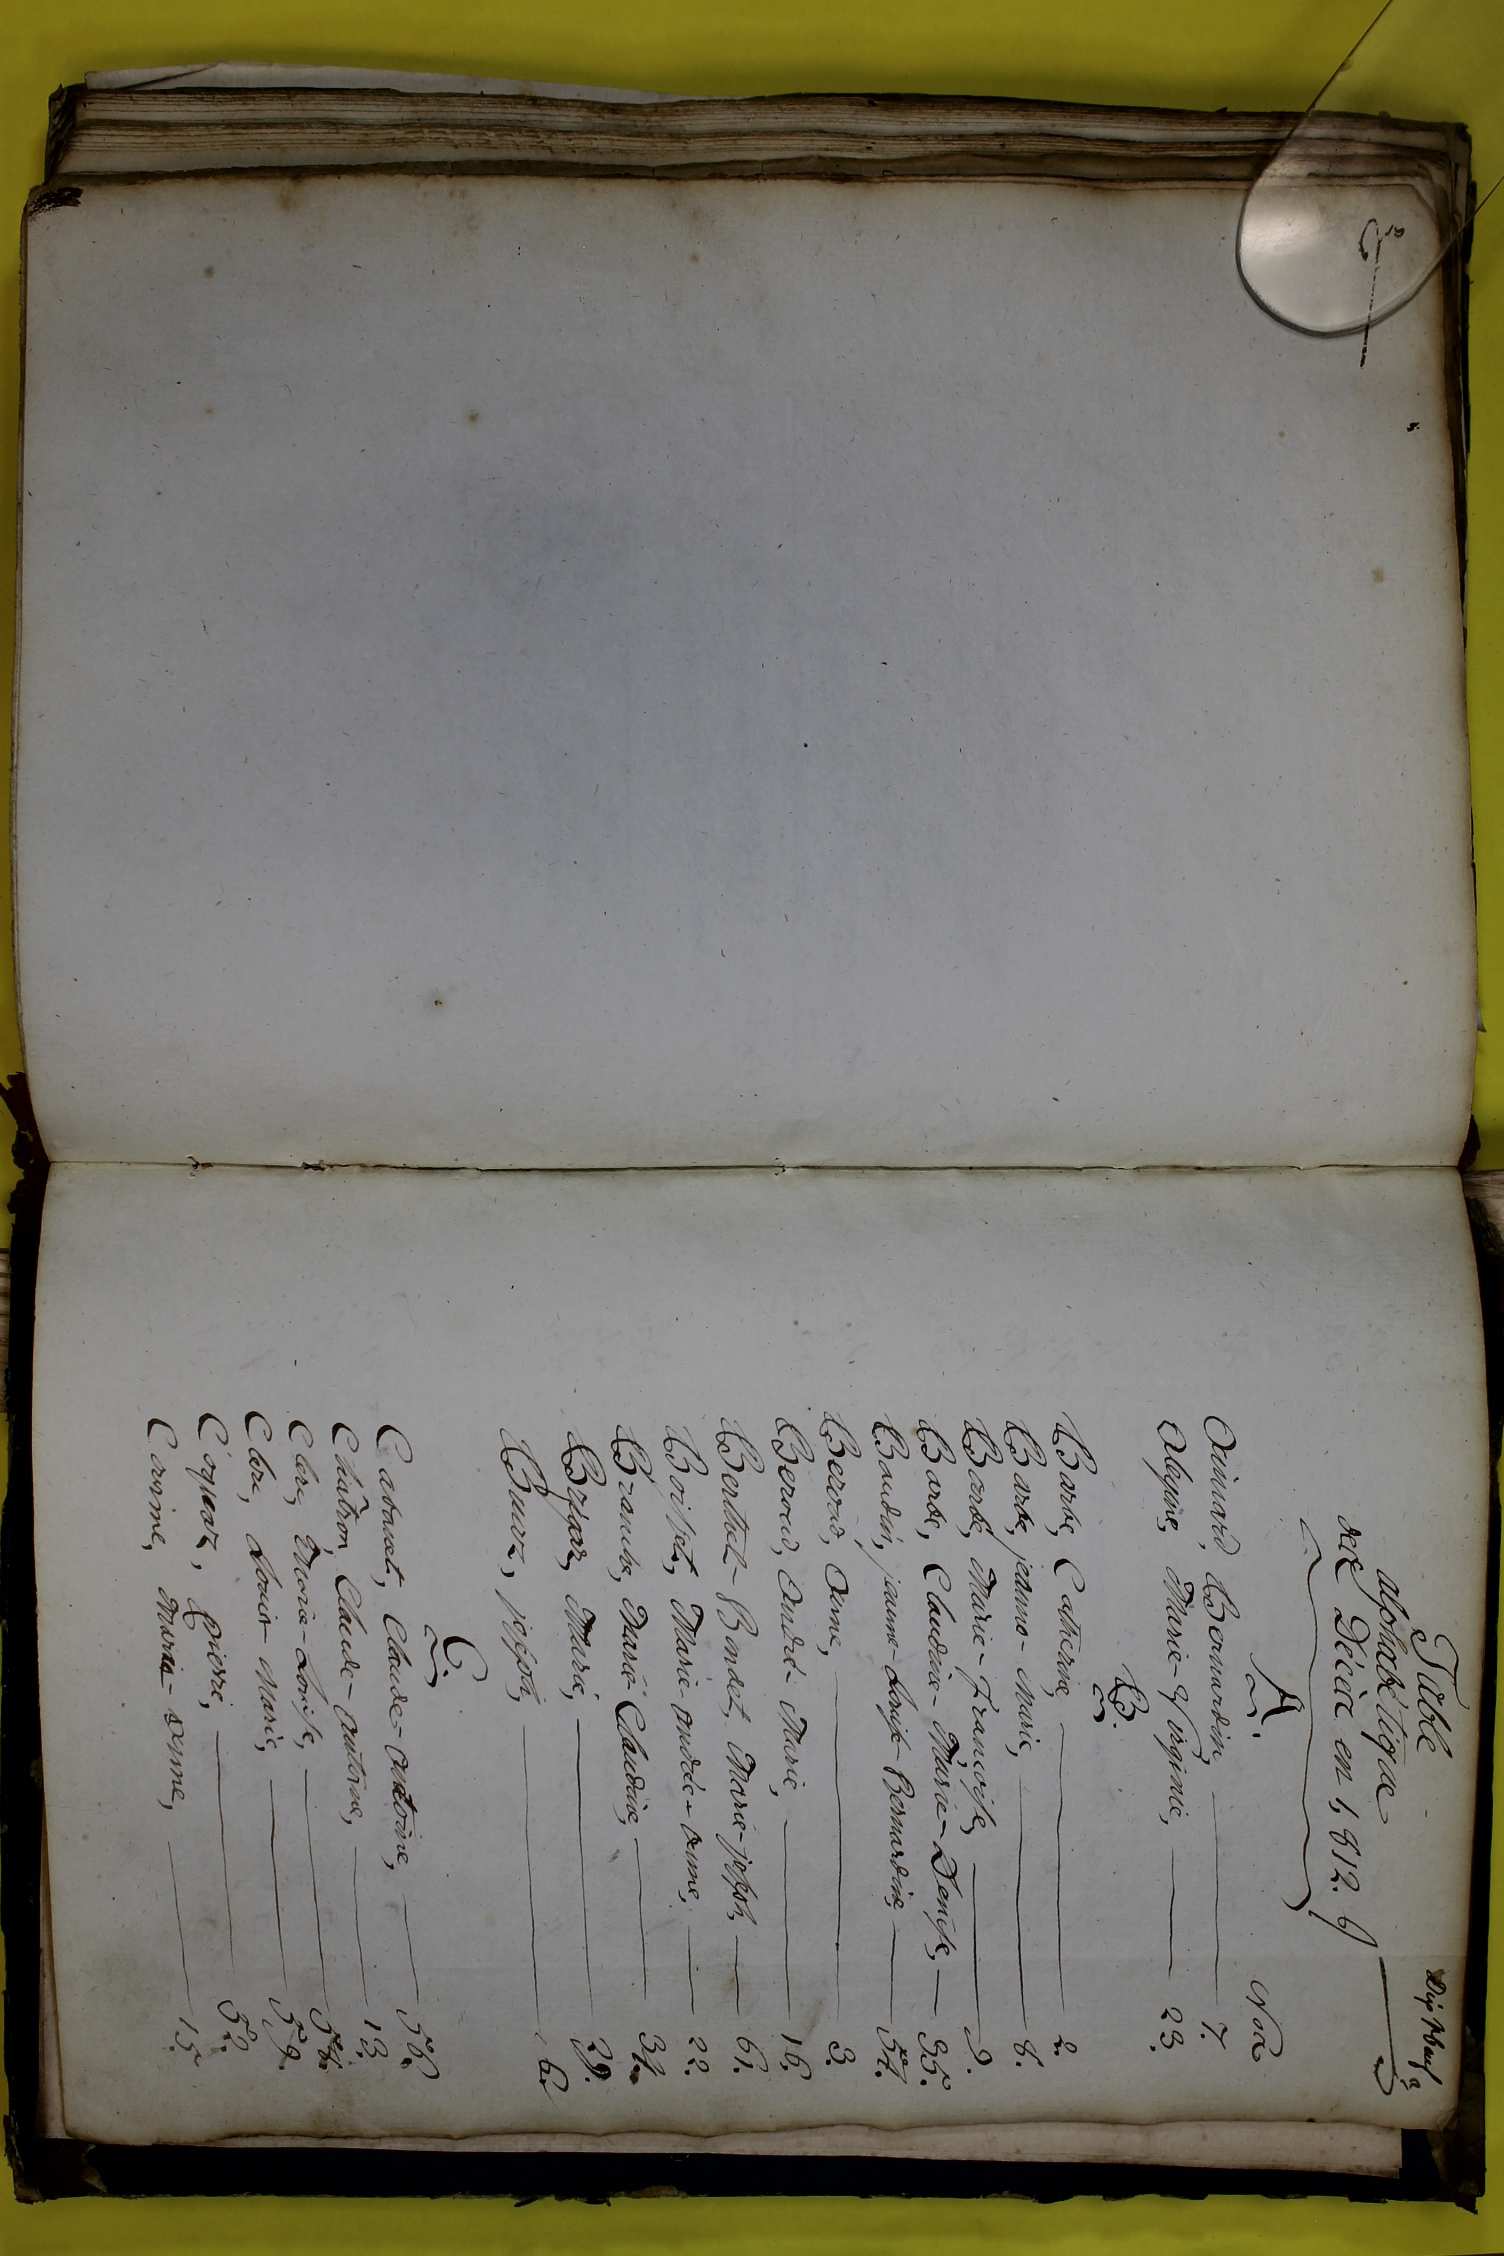 Table
alphabétique
des Décès en 1,812.
Nos
A.
Aimard, Bernardin, 7.
Aleyme, Marie-Virginie, 23.
B.
Barbe, Catherine, 2.
Barbe, jeanne-Marie, 8.
Barbe, Marie-Françoise, 9.
Barbe, Claudine-Marie-Denise, 35.
Baudin, jeanne-Louise-Bernardine 54.
Beroud, Anne, 3.
Beroud, André-Marie, 16.
Berthet-Bondet, Marie-joseph, 61.
Boisset, Marie-andrée-anne, 22.
Marie-Claudine, 34.
Marie, 29.
Buure, joseph, 6.
C.
Cabaut, Claude-Antoine, 56.
Châtron, Claude-Antoine, 13.
Clere, Marie-Louise,
Clere, Louis-Marie, 59.
Coquoz, pierre, 52.
Marie-anne, 15.